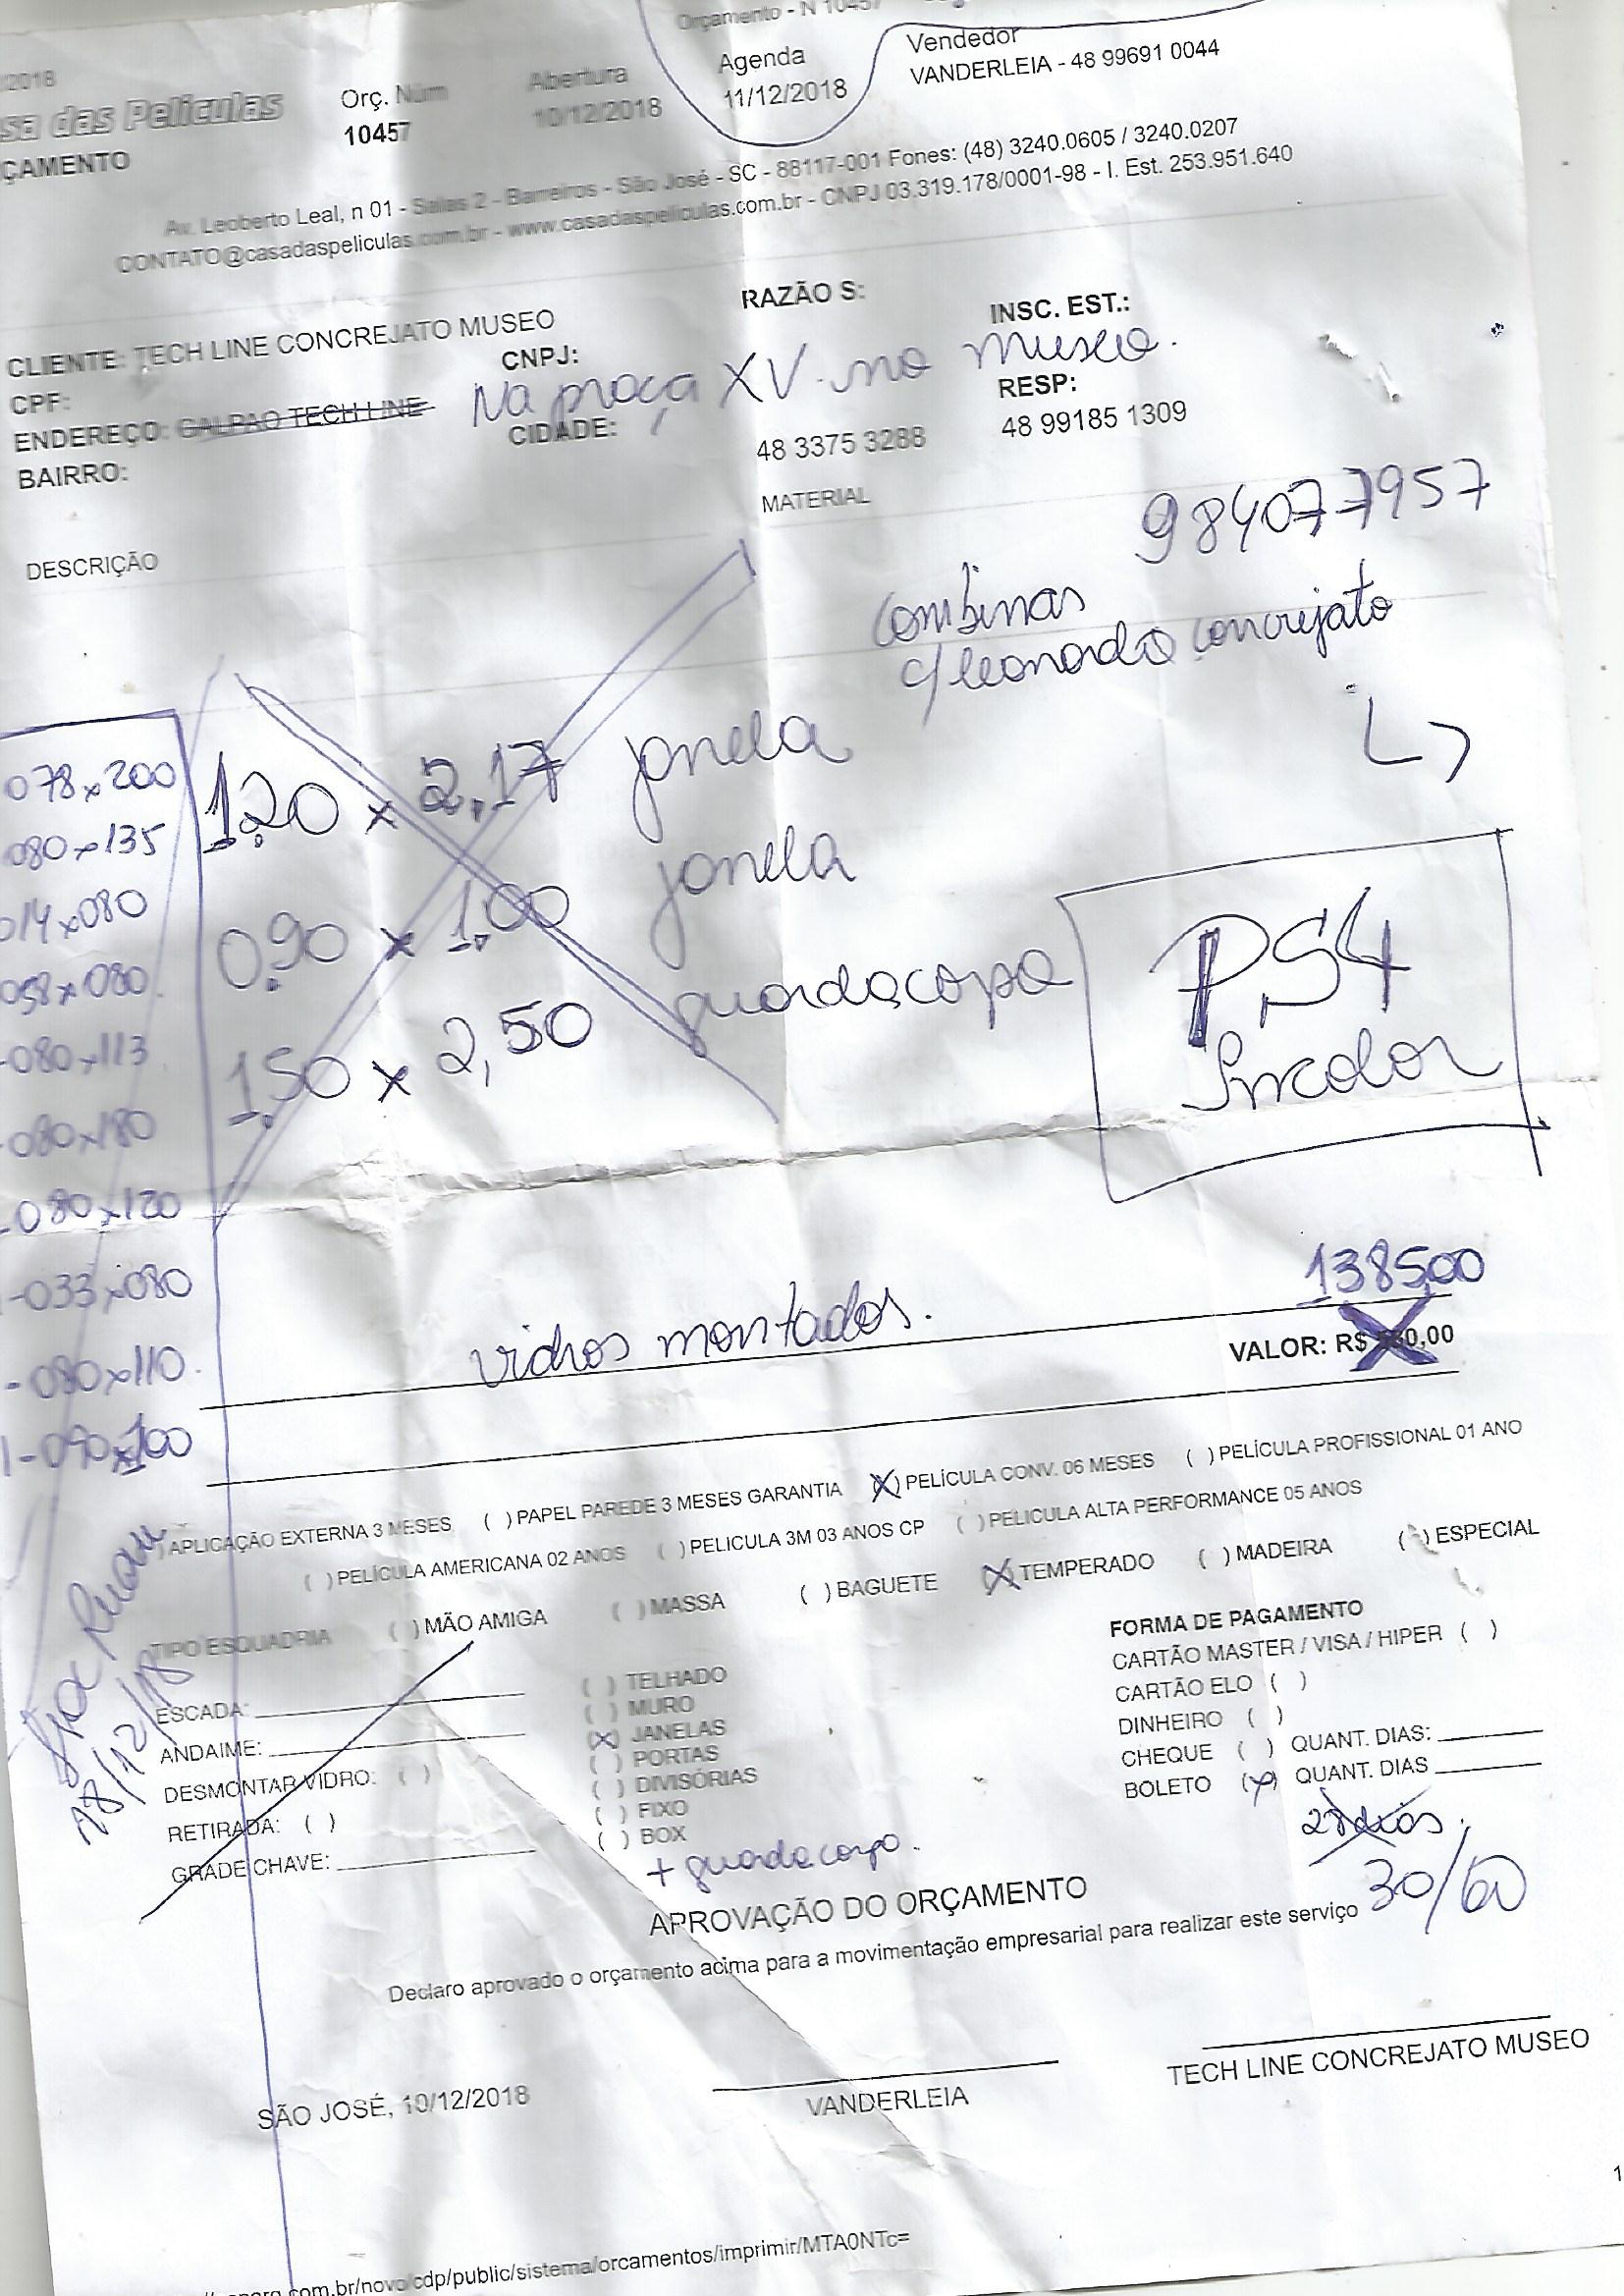 Orçamento - N 10457
/2018
Abertura
Agenda
Vendedor
sa das Películas
Orç. Núm
10/12/2018
11/12/2018
VANDERLEIA - 48 99691 0044
ÇAMENTO
10457
Av. Leoberto Leal, n 01 - Salas 2 - Barreiros - São José - SC - 88117-001 Fones: (48) 3240.0605 / 3240.0207
CONTATO@casadaspeliculas.com.br - www.casadaspeliculas.com.br - CNPJ 03.319.178/0001-98 - I. Est. 253.951.640
CLIENTE: TECH LINE CONCREJATO MUSEO
RAZÃO S:
CPF:
CNPJ:
INSC. EST.:
Na praça XV no museo.
ENDEREÇO: GALPAO TECH LINE
CIDADE:
RESP:
BAIRRO:
48 3375 3288
48 99185 1309
DESCRIÇÃO
MATERIAL
984077957
combinas
c/ leonardo concrejato
078x200
1,20 x 2,17 janela
080x135
014x080
0,90 x 1,00 janela
058x080
1,50 x 2,50 guardacopa
PS4
Incolor
-080x113
-080x180
-080x120
-033x080
-080x110.
1-090x100
vidros montados.
1385,00
VALOR: R$ 0,00
) APLICAÇÃO EXTERNA 3 MESES ( ) PAPEL PAREDE 3 MESES GARANTIA (X) PELÍCULA CONV. 06 MESES ( ) PELÍCULA PROFISSIONAL 01 ANO
( ) PELÍCULA AMERICANA 02 ANOS ( ) PELICULA 3M 03 ANOS CP ( ) PELICULA ALTA PERFORMANCE 05 ANOS
TIPO ESQUADRIA ( ) MÃO AMIGA ( ) MASSA ( ) BAGUETE (X) TEMPERADO ( ) MADEIRA ( ) ESPECIAL
18/12/18
ESCADA:
ANDAIME:
DESMONTAR VIDRO: ( )
RETIRADA: ( )
GRADE CHAVE:
( ) TELHADO
( ) MURO
(x) JANELAS
( ) PORTAS
( ) DIVISÓRIAS
( ) FIXO
( ) BOX
+ guarda corpo.
FORMA DE PAGAMENTO
CARTÃO MASTER / VISA / HIPER ( )
CARTÃO ELO ( )
DINHEIRO ( )
CHEQUE ( ) QUANT. DIAS:
BOLETO (x) QUANT. DIAS
28 dias.
30/60
APROVAÇÃO DO ORÇAMENTO
Declaro aprovado o orçamento acima para a movimentação empresarial para realizar este serviço
SÃO JOSÉ, 10/12/2018
VANDERLEIA
TECH LINE CONCREJATO MUSEO
.com.br/novo/cdp/public/sistema/orcamentos/imprimir/MTA0NTc=
1